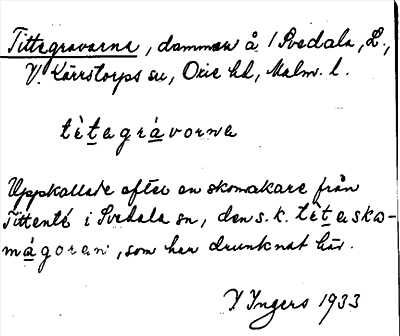 Tittagravarna, dammar å 1 Svedala, L.,
V. Kärrstorps sn, Oxie hd, Malm. l.
tètagrávorna
Uppkallade efter en skomakare från
Tittente i Svedala sn, den s.k. tètaska-
mágoran, som har drunknat här.
I Ingers 1933